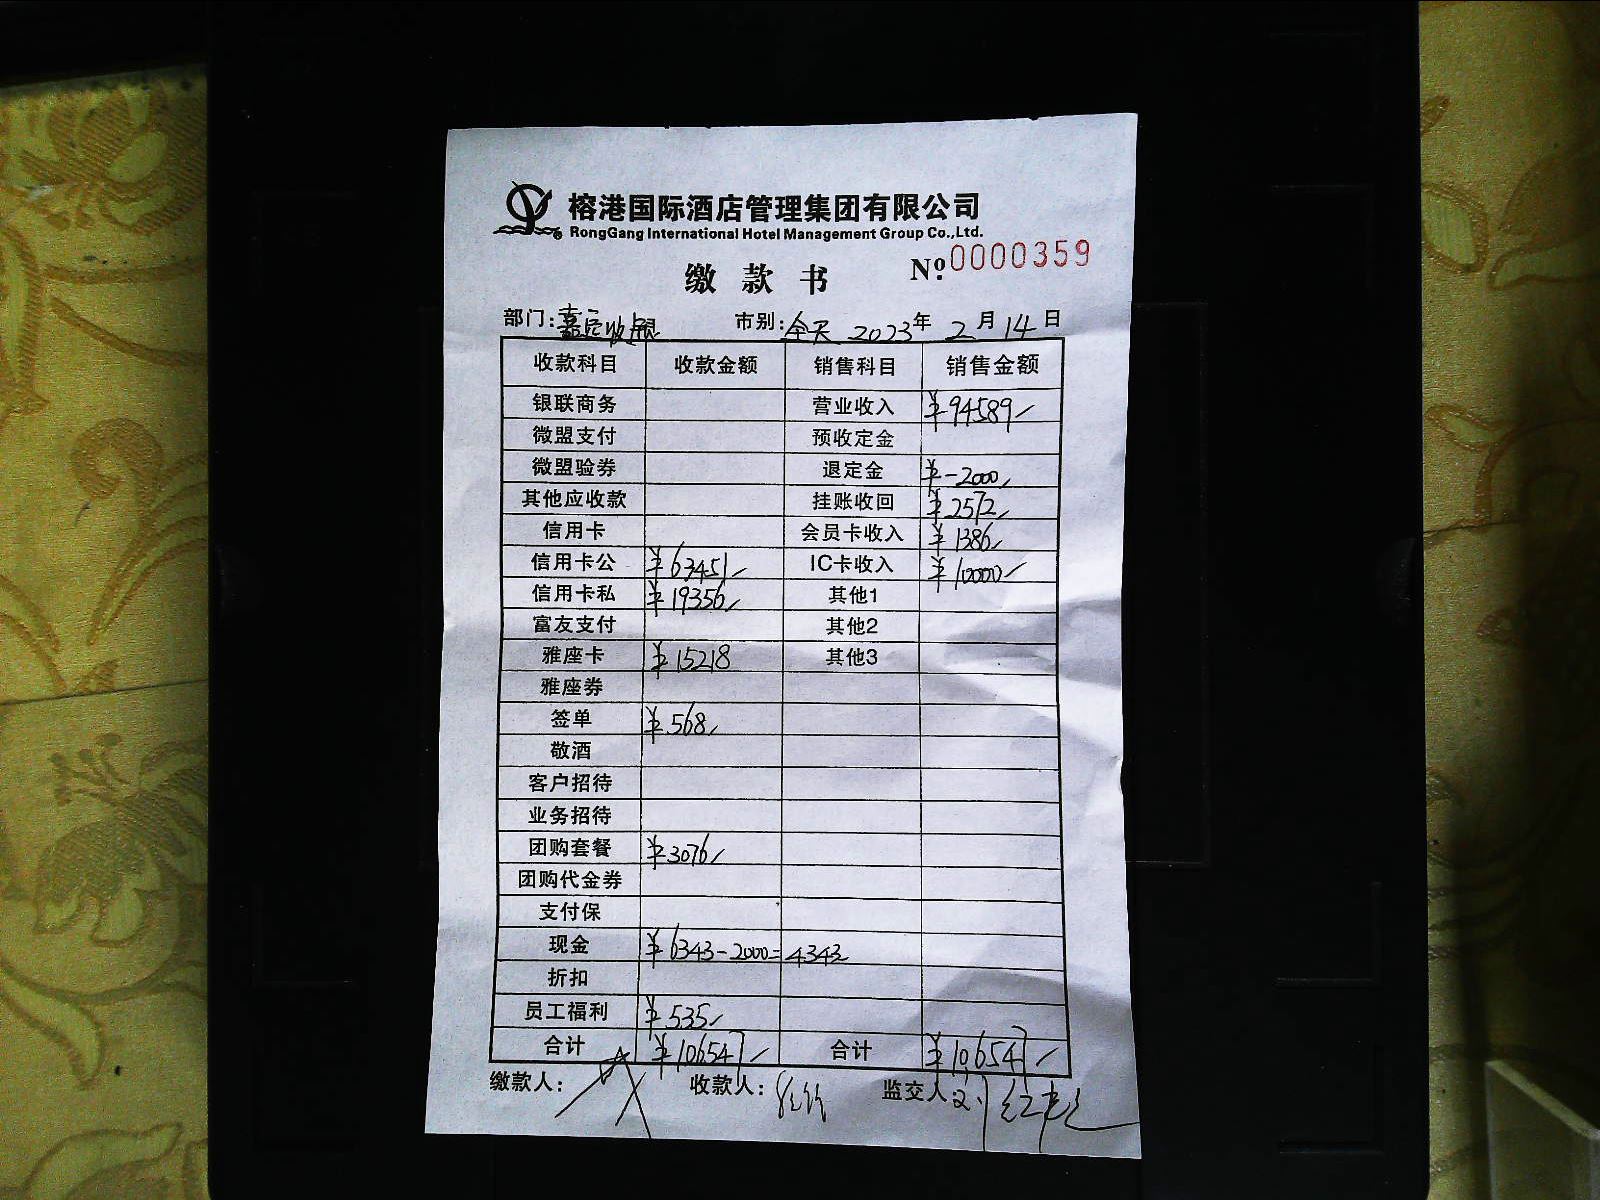 榕港国际酒店管理集团有限公司
RongGang International Hotel Management Group Co.,Ltd.
缴款书 Nº 0000359
部门: 市别:全天 2023年2月14日
收款科目 收款金额 销售科目 销售金额
银联商务 营业收入 ¥94589
微盟支付 预收定金
微盟验券 退定金 ¥-2000
其他应收款 挂账收回 ¥2572
信用卡 会员卡收入 ¥1386
信用卡公 ¥63451 IC卡收入 ¥10000
信用卡私 ¥19356 其他1
富友支付 其他2
雅座卡 ¥15218 其他3
雅座券
签单 ¥568
敬酒
客户招待
业务招待
团购套餐 ¥3076
团购代金券
支付保
现金 ¥6343-2000=4343
折扣
员工福利 ¥535
合计 ¥106547 合计 ¥106547
缴款人: 收款人: 监交人: